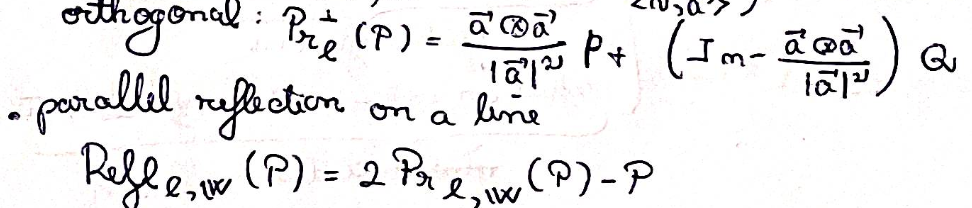 <N,a>)
orthogonal: Pr⊥ℓ (P) = a⃗ ⊗ a⃗ / |a⃗|² P + (Im - a⃗ ⊗ a⃗ / |a⃗|²) Q
• parallel reflection on a line
Reflℓ,W (P) = 2 Prℓ,W (P) - P